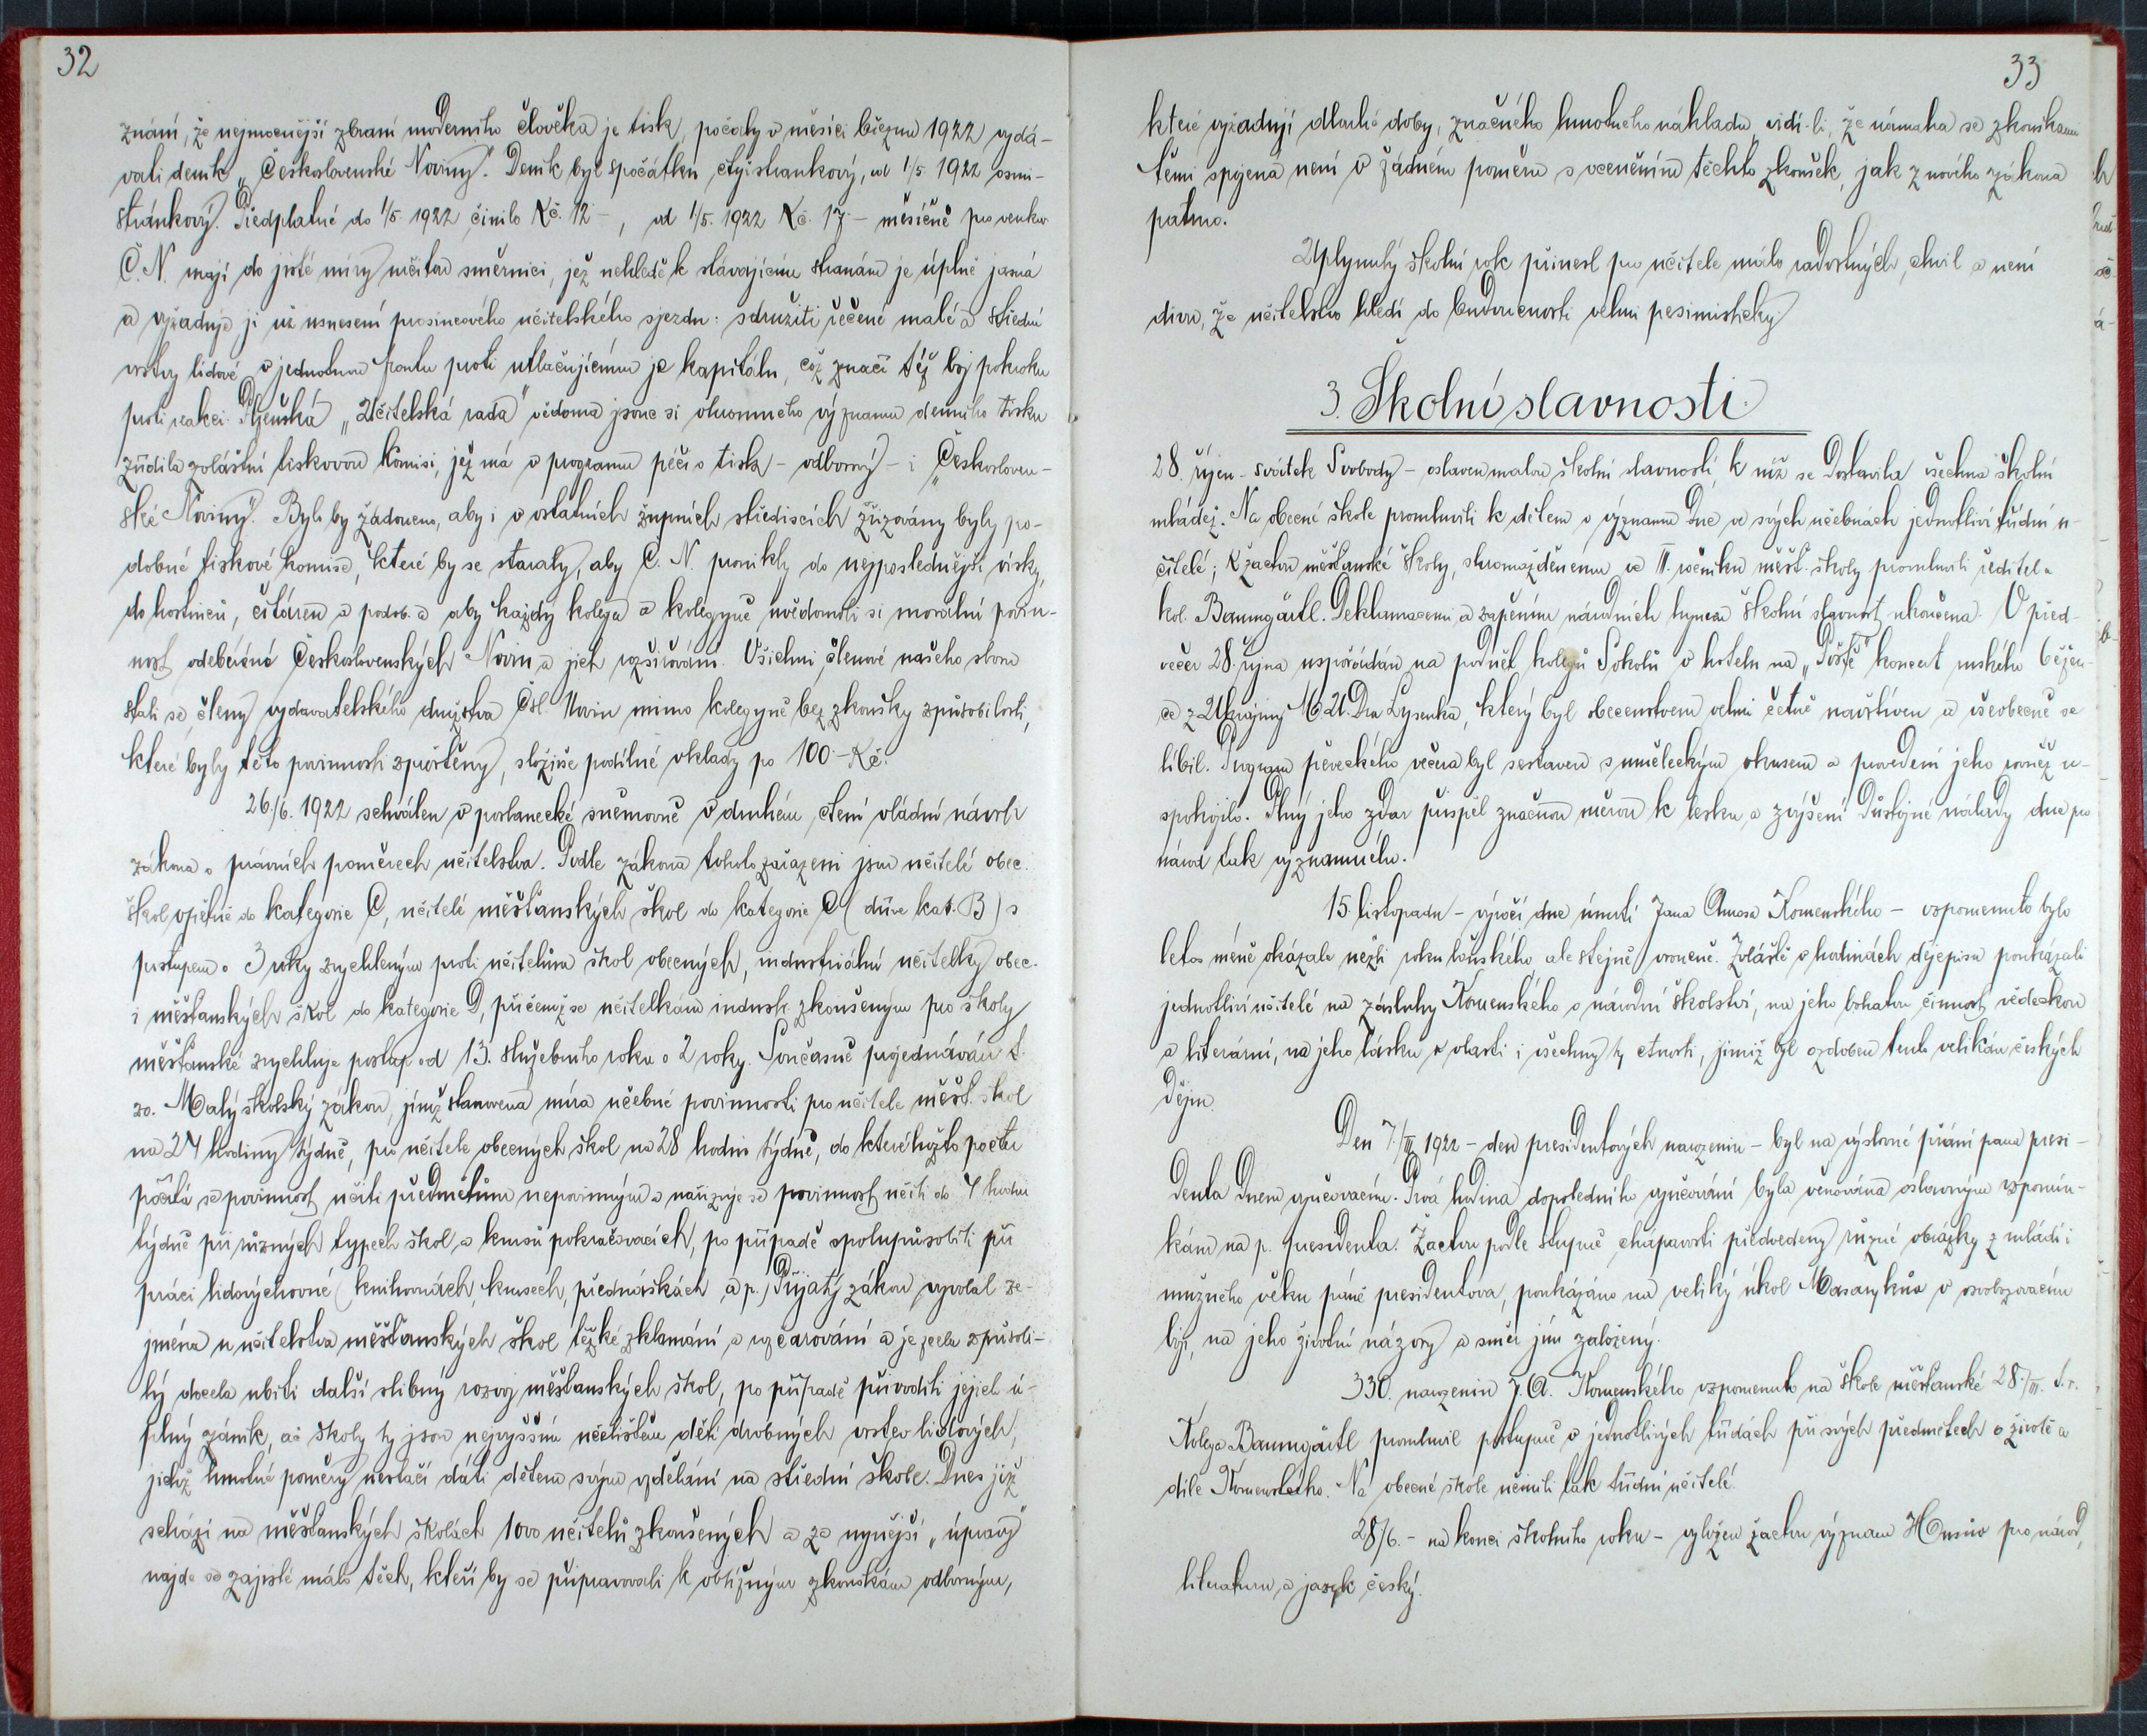 32
znání, že nejmocnější zbraní moderního člověka je tisk, počaly v měsíci březnu 1922 vydá-
vati deník „Československé Noviny". Deník byl zpočátku čtyřstránkový, od 1/5 1922 osmi-
stránkový. Předplatné do 1/5. 1922 činilo Kč. 12·-, od 1/5. 1922 Kč. 17·- měsíčně pro venkov
Č. N. mají do jisté míry určitou směrnici, jež nehledě k stávajícím stranám je úplně jasná
a vyžaduje ji už usnesení prosincového učitelského sjezdu: sdružiti řečené malé a střední
vrstvy lidové v jednotnou frontu proti utlačujícímu je kapitálu, což značí též boj pokroku
proti reakci. Plzeňská „Učitelská rada" vědoma jsouc si ohromného významu denního tisku
zřídila zvláštní tiskovou komisi, jež má v programu péči o tisk - odborný - i „Českosloven-
ské Noviny". Bylo by žádoucno, aby i v ostatních župních střediscích zřizovány byly po-
dobné tiskové komise, které by se staraly, aby Č. N. pronikly do nejposlednější vísky,
do hostinců, čítáren a podob. a aby každý kolega a kolegyně uvědomili si morální povin-
nost odebírání Československých Novin a jich rozšiřování. Všichni členové našeho sboru
stali se členy vydavatelského družstva Čsl. Novin mimo kolegyně bez zkoušky způsobilosti,
které byly této povinnosti zproštěny, složivše podílné vklady po 100·- Kč.
26./6. 1922 schválen v poslanecké sněmovně v druhém čtení vládní návrh
zákona o právních poměrech učitelstva. Podle zákona tohoto zařazeni jsou učitelé obec.
škol opětně do kategorie C, učitelé měšťanských škol do kategorie C (dříve kat. B) s
postupem o 3 roky zrychleným proti učitelům škol obecných, industriální učitelky obec.
i měšťanských škol do kategorie D, při čemž se učitelkám industr. zkoušeným pro školy
měšťanské zrychluje postup od 13. služebního roku o 2 roky. Současně projednáván t.
zv. Malý školský zákon, jímž stanovena míra učebné povinnosti pro učitele měšť. škol
na 24 hodiny týdně, pro učitele obecných škol na 28 hodin týdně, do kteréhožto počtu
počítá se povinnost učiti předmětům nepovinným a nařizuje se povinnost učiti do 4 hodin
týdně při různých typech škol a kursů pokračovacích, po případě spolupůsobiti při
práci lidovýchovné (knihovnách, kursech, přednáškách a p.) Přijatý zákon vyvolal ze-
jména u učitelstva měšťanských škol těžké zklamání a rozčarování a je zcela způsobi-
lý docela ubíti další slibný rozvoj měšťanských škol, po případě přivoditi jejich ú-
plný zánik, ač školy ty jsou nejvyšším učelištěm dětí drobných vrstev lidových,
jichž hmotné poměry nestačí dáti dětem svým vzdělání na střední škole. Dnes již
schází na měšťanských školách 1000 učitelů zkoušených a za nynější „úpravy"
najde se zajisté málo těch, kteří by se připravovali k obtížným zkouškám odborným,
33
které vyžadují dlouhé doby, značného hmotného nákladu, vidí-li, že námaha se zkouškami
těmi spojena není v žádném poměru s oceněním těchto zkoušek, jak z nového zákona
patrno.
Uplynulý školní rok přinesl pro učitele málo radostných chvil a není
divu, že učitelstvo hledí do budoucnosti velmi pesimisticky.
3. Školní slavnosti.
28. říjen - svátek Svobody - oslaven malou školní slavností, k níž se dostavila všechna školní
mládež. Na obecné škole promluvili k dětem o významu dne ve svých učebnách jednotliví třídní u-
čitelé; k žactvu měšťanské školy, shromážděnému ve II. ročníku měšť. školy promluvili ředitel a
kol. Baumgärtl. Deklamacemi a zapěním národních hymen školní slavnost ukončena. V před-
večer 28. října uspořádán na podnět kolegů Sokolů v hotelu na „Poště" koncert ruského běžen-
ce z Ukrajiny MUDra Lysenka, který byl obecenstvem velmi četně navštíven a všeobecně se
líbil. Program pěveckého večera byl sestaven s uměleckým vkusem a provedení jeho rovněž u-
spokojilo. Plný jeho zdar přispěl značnou měrou k lesku a zvýšení důstojné nálady dne pro
národ tak významného.
15. listopadu - výročí dne úmrtí Jana Amosa Komenského - vzpomenuto bylo
letos méně okázale nežli roku loňského ale stejně vroucně. Zvláště v hodinách dějepisu poukázali
jednotliví učitelé na zásluhy Komenského o národní školství, na jeho bohatou činnost vědeckou
a literární, na jeho lásku k vlasti i všechny ty ctnosti, jimiž byl ozdoben tento velikán českých
dějin.
Den 7./III. 1922 - den presidentových narozenin - byl na výslovné přání pana presi-
denta dnem vyučovacím. Prvá hodina dopoledního vyučování byla věnována oslavným vzpomín-
kám na p. presidenta. Žactvu podle stupně chápavosti předvedeny různé obrázky z mládí i
mužného věku páně presidentova, poukázáno na veliký úkol Masarykův v osvobozovacím
boji, na jeho životní názory a směr jím založený.
330. narozenin J. A. Komenského vzpomenuto na škole měšťanské 28./III. t. r.
Kolega Baumgärtl promluvil postupně v jednotlivých třídách při svých předmětech o životě a
díle Komenského. Na obecné škole učinili tak třídní učitelé.
28/6. - na konci školního roku - vyložen žactvu význam Husův pro národ,
literaturu a jazyk český.